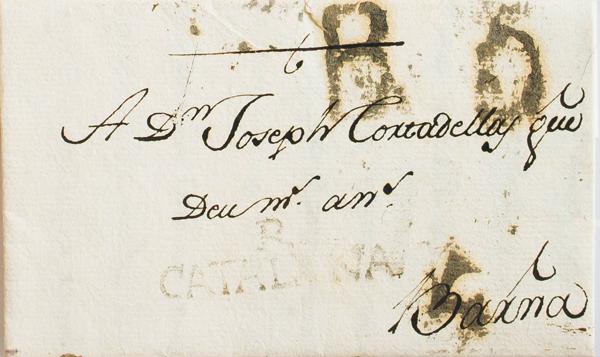 R 6
6
A Dⁿ Joseph Cortadellas que
Deu mˢ anˢ
B
CATALUÑA
Barna